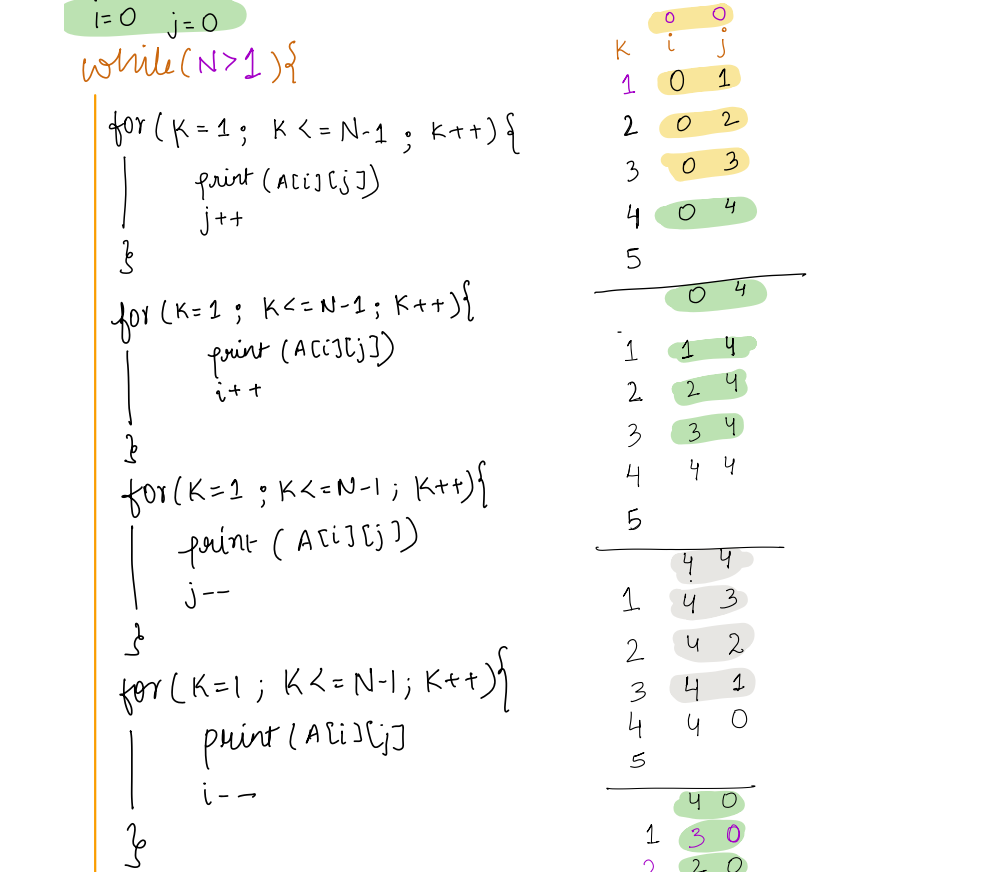 i=0 j=0
while(N>1){
for(K=1; K<=N-1; K++){
print(A[i][j])
j++
}
for(K=1; K<=N-1; K++){
print(A[i][j])
i++
}
for(K=1; K<=N-1; K++){
print(A[i][j])
j--
}
for(K=1; K<=N-1; K++){
print(A[i][j]
i--
}
0 0
K i j
1 0 1
2 0 2
3 0 3
4 0 4
5
0 4
1 1 4
2 2 4
3 3 4
4 4 4
5
4 4
1 4 3
2 4 2
3 4 1
4 4 0
5
4 0
1 3 0
2 2 0